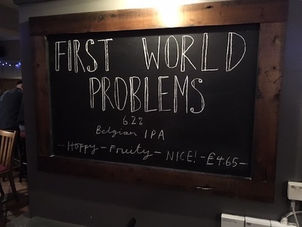 FIRST WORLD
PROBLEMS
6.2%
Belgian IPA
- Hoppy - Fruity - NICE! - £4.65 -